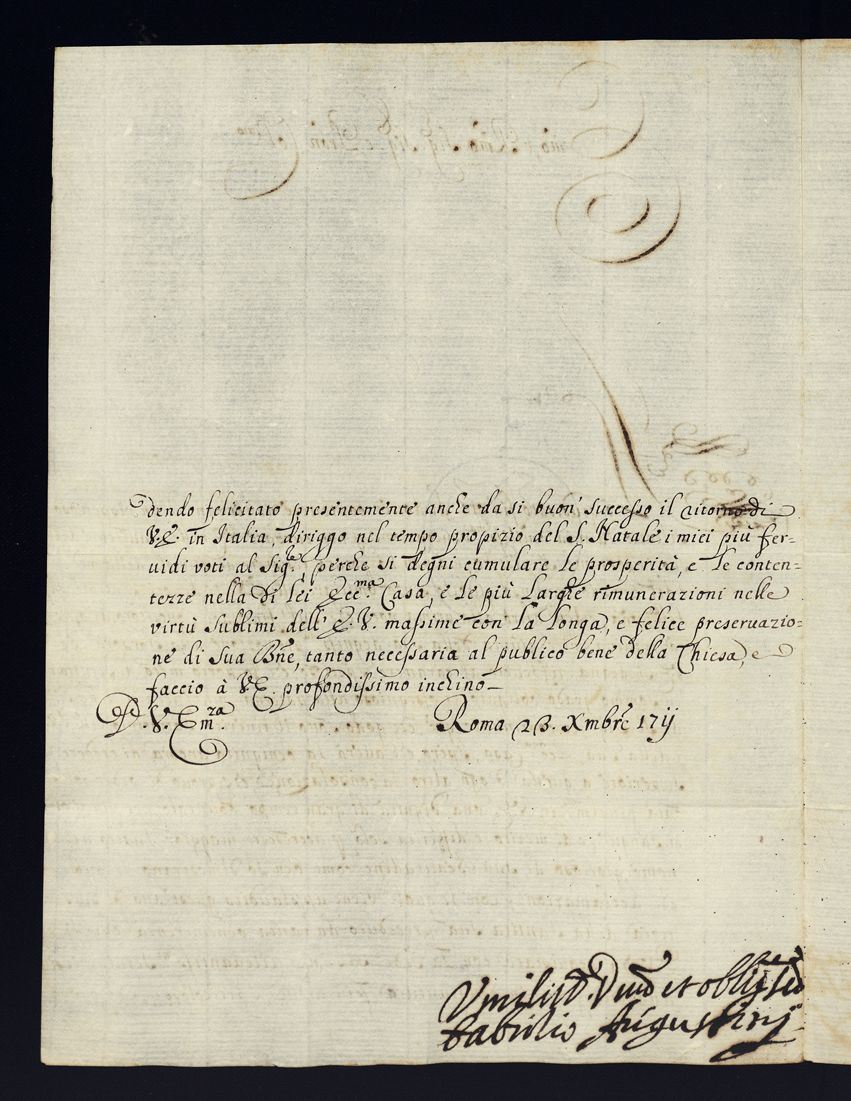 dendo felicitato presentemente anche da si buon' successo il ritorno di
V. E. in Italia, diriggo nel tempo propizio del S. Natale i miei più fer=
uidi voti al Sig.re perche si degni cumulare le prosperità, e le conten=
tezze nella di lei Ecc.ma Casa, e le più Larghe rimunerazioni nelle
virtù sublimi dell'E. V. massime con La Longa, e felice preseruazio=
ne di sua Bñe, tanto necessaria al publico bene della Chiesa, e
faccio à V. E. profondissimo inchino
D. V. Em.za
Roma 23. Xmbre 17ij
Vmiliss.o Deuo et obligo
Augustini